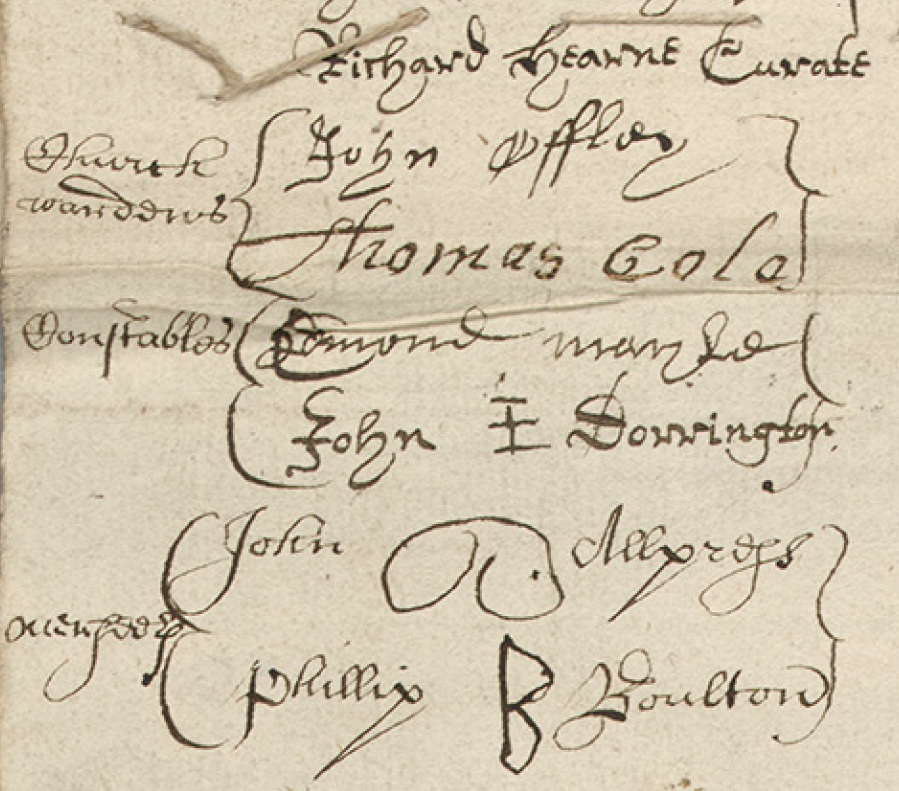 Richard Hearne Curate
Church John Offley
wardens
Thomas Cole
Constables Edmond
John I Dorrington
John Allpress
overseers
Phillip B Boulton